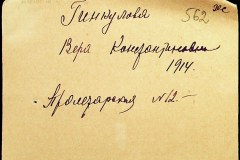 Гинкулова 562 же
Вера Константиновна
1914.
- Пролетарская №12.-